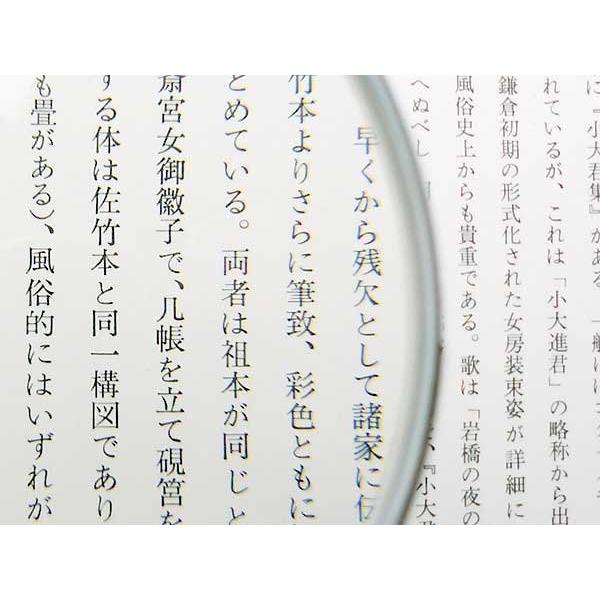 に『小大君集』がある。一般には
れているが、これは「小大進君」の略称から出
鎌倉初期の形式化された女房装束姿が詳細に
風俗史上からも貴重である。歌は「岩橋の夜の
へぬべし
『小大君
早くから残欠として諸家に伝
竹本よりさらに筆致、彩色ともに
とめている。両者は祖本が同じと
斎宮女御徽子で、几帳を立て硯筥を
する体は佐竹本と同一構図であり
も畳がある)、風俗的にはいずれが